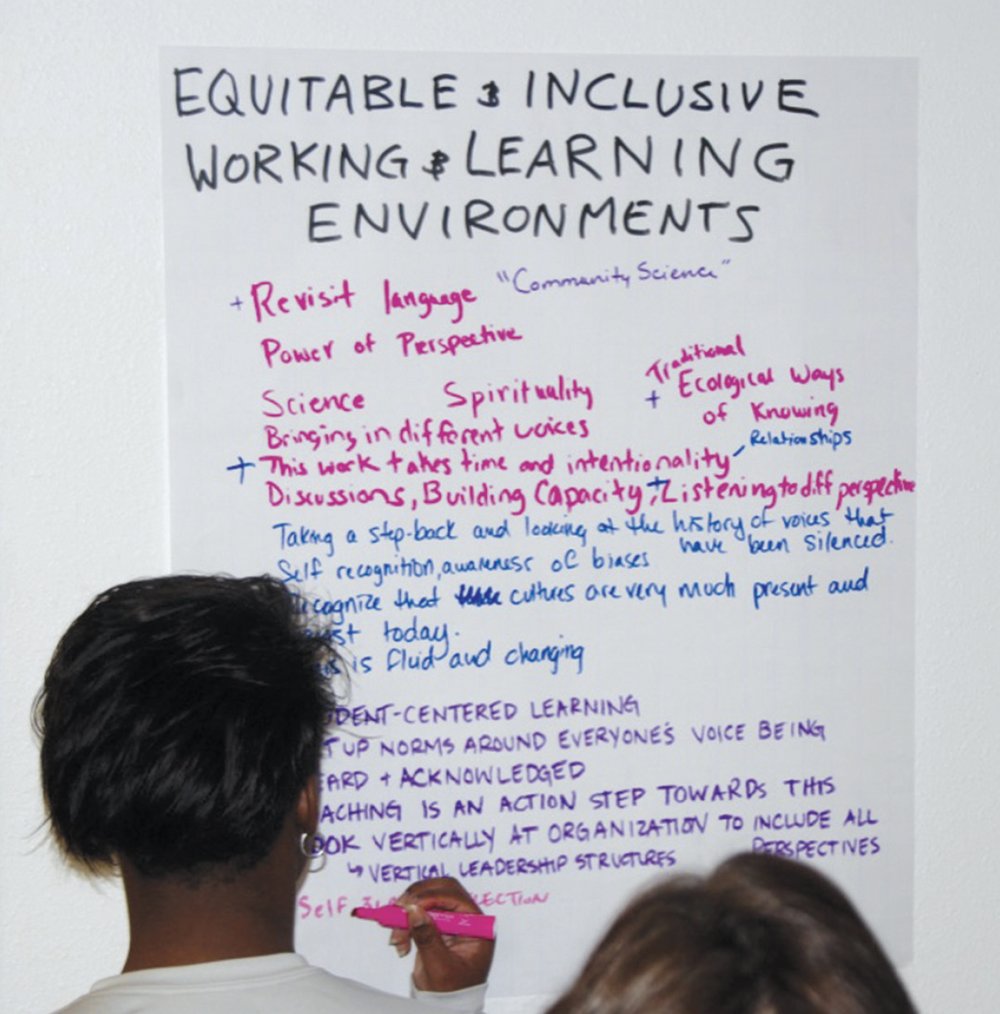 EQUITABLE & INCLUSIVE
WORKING & LEARNING
ENVIRONMENTS
+ Revisit language "Community Science"
Power of Perspective
Science Spirituality + Traditional Ecological Ways of Knowing
Bringing in different voices
+ This work takes time and intentionality Relationships
Discussions, Building Capacity, + Listening to diff perspective
Taking a step-back and looking at the history of voices that have been silenced.
Self recognition, awareness of biases
cognize that cultures are very much present and
today.
is fluid and changing
DENT-CENTERED LEARNING
T UP NORMS AROUND EVERYONE'S VOICE BEING
ARD + ACKNOWLEDGED
ACHING IS AN ACTION STEP TOWARDS THIS
OOK VERTICALLY AT ORGANIZATION TO INCLUDE ALL PERSPECTIVES
↳ VERTICAL LEADERSHIP STRUCTURES
Self LECTION